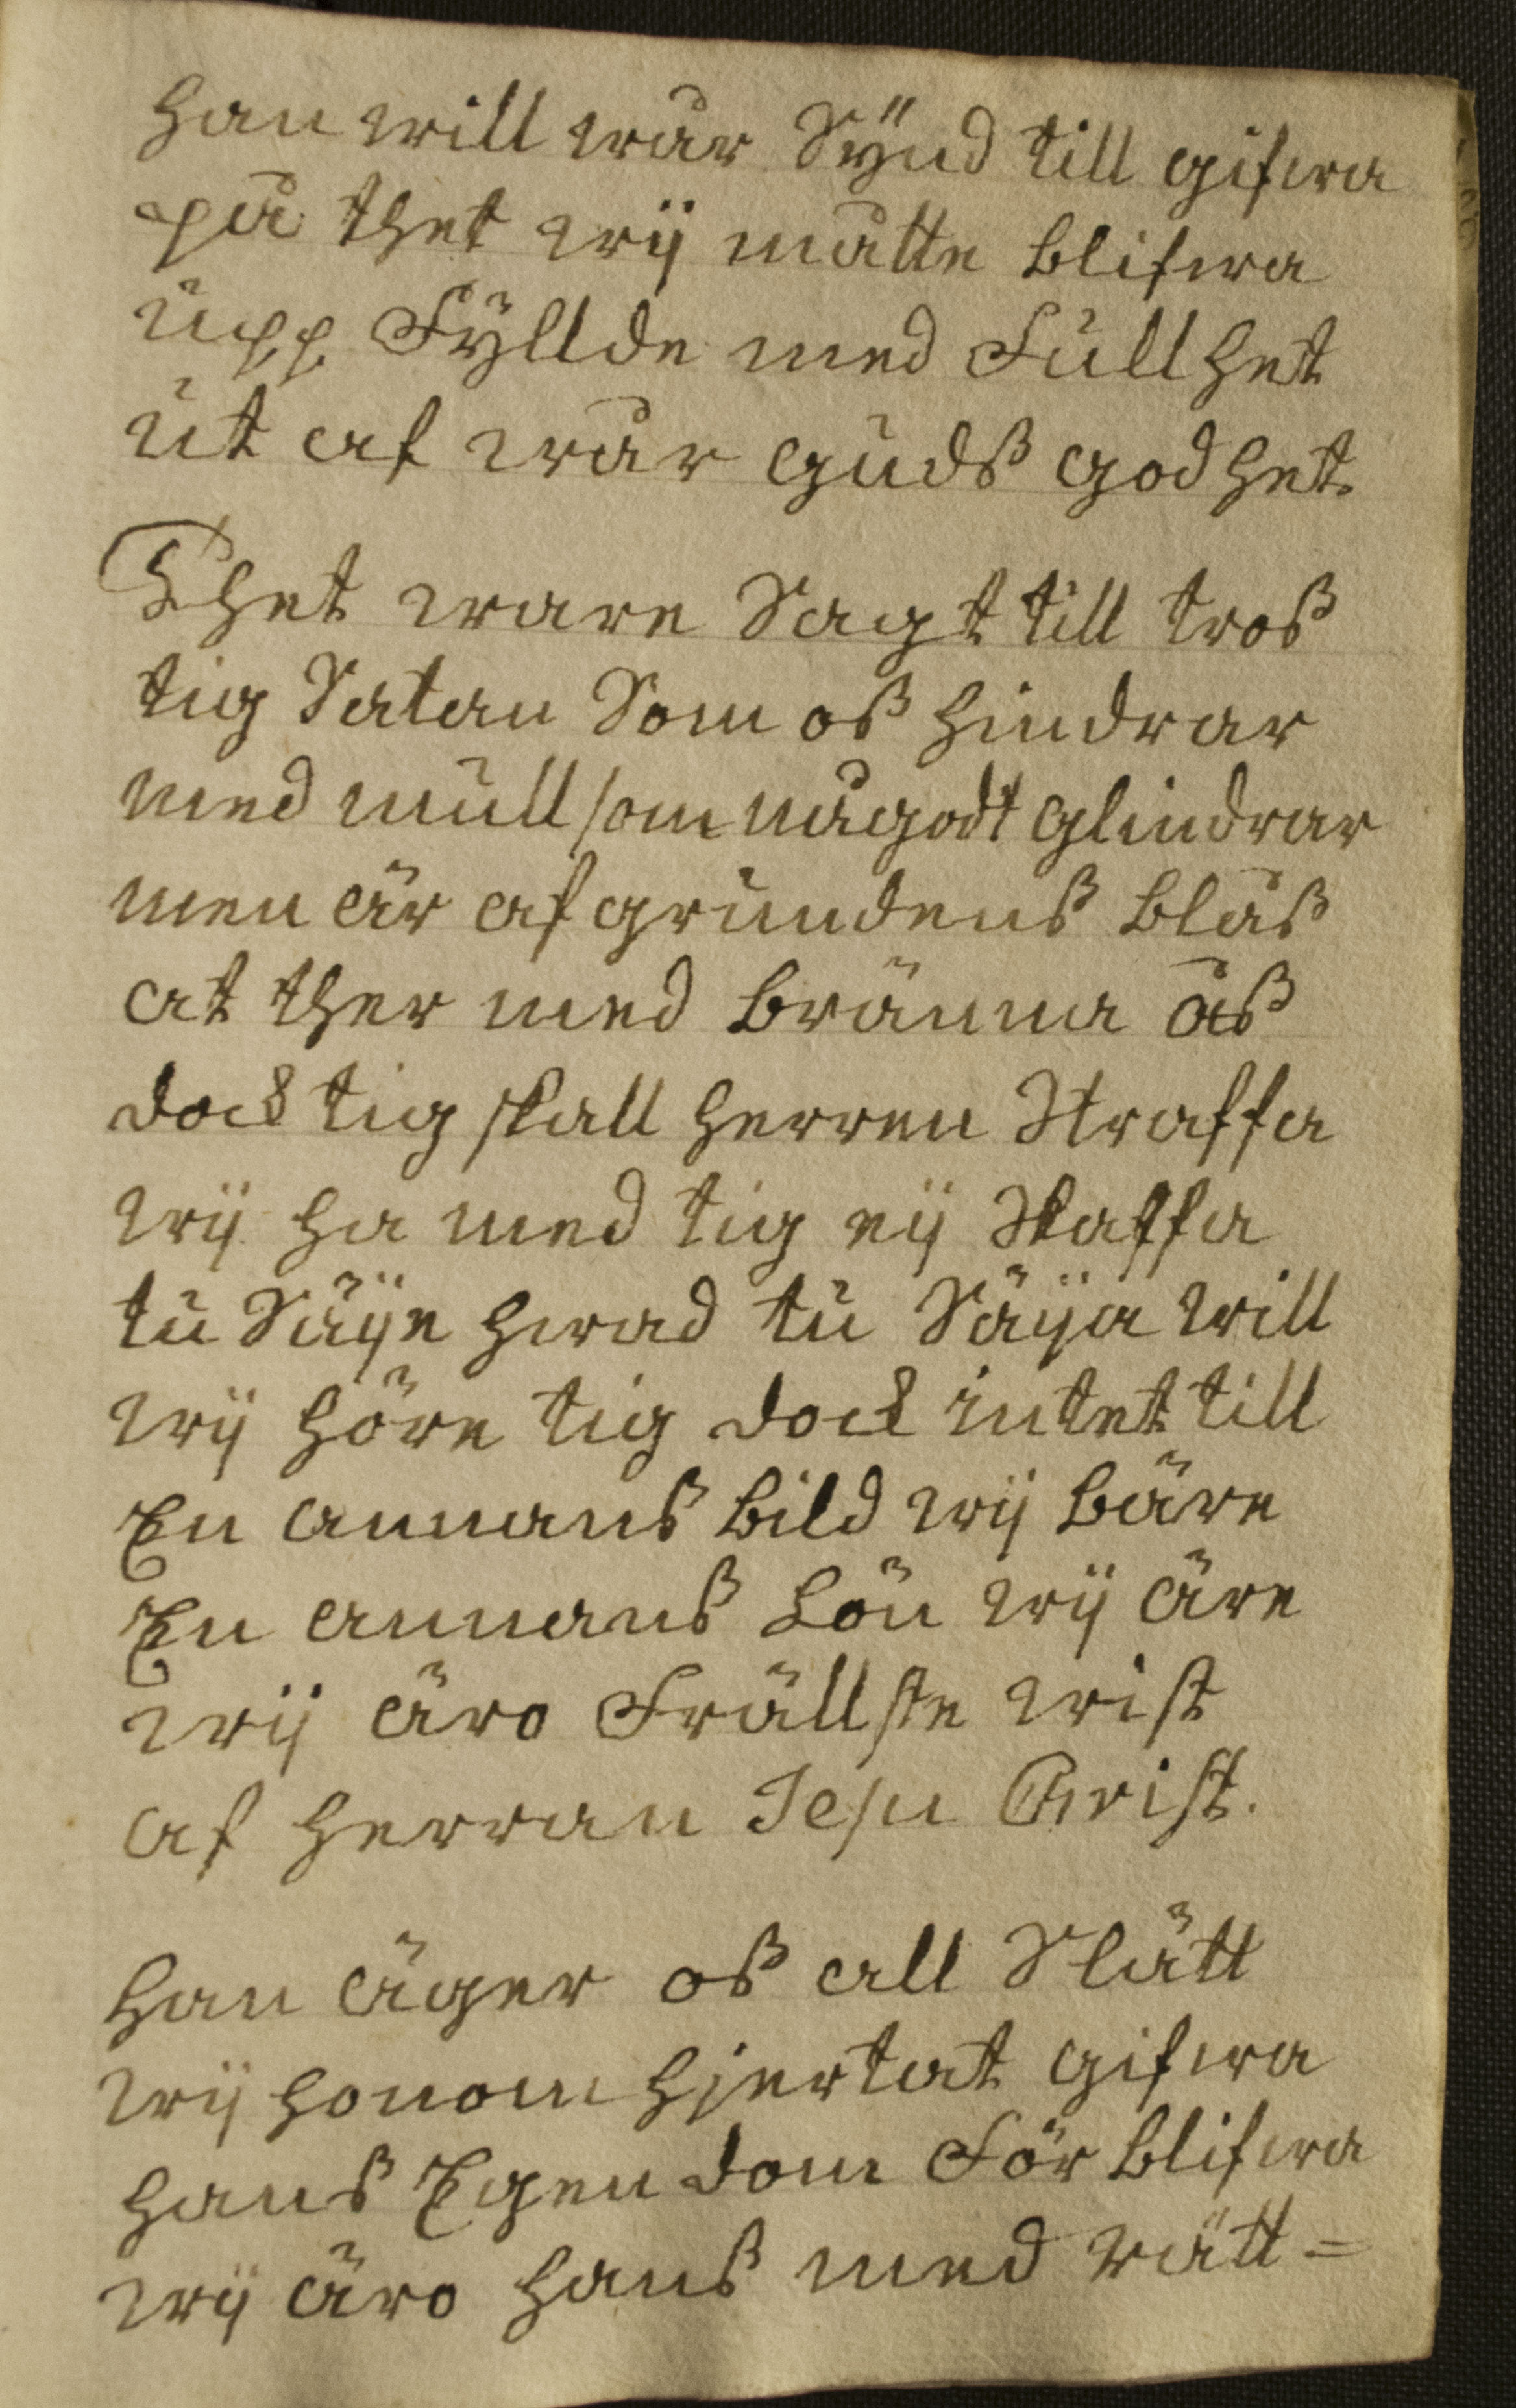 han will wår Sÿnd till gifwa
på thet wij måtte blifwa
upp Fÿllde med Fullhet
ut af wår Guds godhet.
Thet ware Sagt till tross
tig Satan Som oss hindrar
med mull som någodt glindrar
men är afgrundens blåss
at ther med bränna åss
dock tig skall herren Straffa
wij ha med tig eij Skaffa
tu Säije hwad tu Säija will
wij höre tig dock intet till
En annans bild wij bäre
En annans Lön wij äre
wij äro Frällste wist
af herran Jesu Christ.
han äger oss all Slätt
wij honom hjertat gifwa
hans Egendom För blifwa
wij äro hans med rätt =